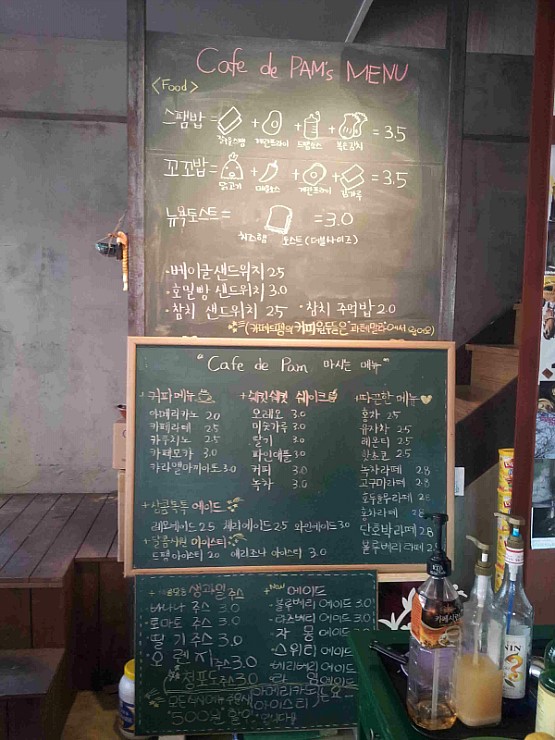 Cafe de PAM's MENU
<Food>
스팸밥 = + + + = 3.5
계란후라이 볶은김치
꼬꼬밥 = + + + = 3.5
닭고기 계란후라이 김가루
뉴욕토스트 = = 3.0
치즈햄 토스트 (더블사이즈)
·베이글샌드위치 2.5
·호밀빵 샌드위치 3.0
·참치 샌드위치 2.5 ·참치 주먹밥 2.0
"Cafe de Pam 마시는 메뉴"
+커피메뉴
아메리카노 2.0
카페라떼 2.5
카푸치노 2.5
카페모카 3.0
카라멜마끼아또 3.0
쉐이크
오레오 3.0
미숫가루 3.0
딸기 3.0
파인애플 3.0
커피 3.0
녹차 3.0
+따끈한 메뉴
홍차 2.5
유자차 2.5
레몬티 2.5
핫초코 2.5
녹차라떼 2.8
고구마라떼 2.8
홍차라떼
단호박라떼 2.8
블루베리라떼
+상콤톡톡 에이드
레몬에이드 2.5 체리에이드 2.5 와인에이드 3.0
+달콤시원 아이스티
드팸 아이스티 2.0 애리조나 아이스티 3.0
생과일주스
·바나나 주스 3.0
·토마토 주스 3.0
·딸기 주스 3.0
·오렌지주스 3.0
·청포도주스 3.0
+New 에이드
·블루베리 에이드 3.0
·라즈베리 에이드 3.0
·자몽 에이드
·스위티 에이드
·체리베리 에이드
·라임 에이드
아메리카노
아이스티
500원
카페시럽